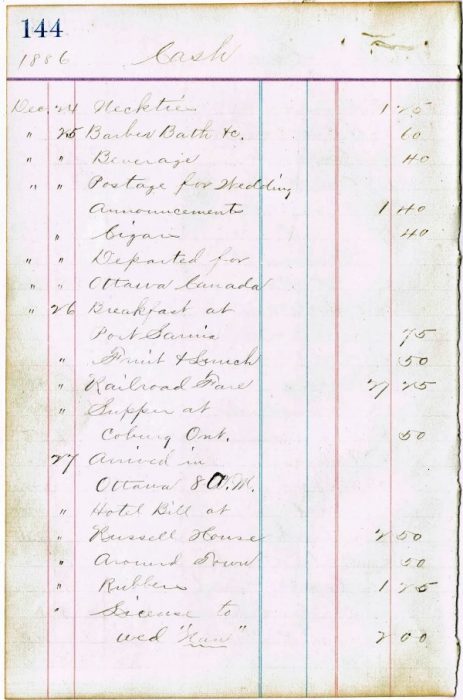 144
1886 Cash
Dec. 24 Necktie 1 25
" 25 Barber Bath &c. 60
" " Beverage 40
" " Postage for Wedding
Announcements 1 40
" Cigars 40
" " Departed for
" " Ottawa Canada
" 26 Breakfast at
Port Sarnia 75
" Fruit & Lunch 50
" Railroad Fare 25
" Supper at
Coburg Ont. 50
27 Arrived in
Ottawa 8 A.M.
" Hotel Bill at
" Russell House 2 50
" Around Town 50
" Rubbers 1 25
" License to
wed "Nan" 2 00